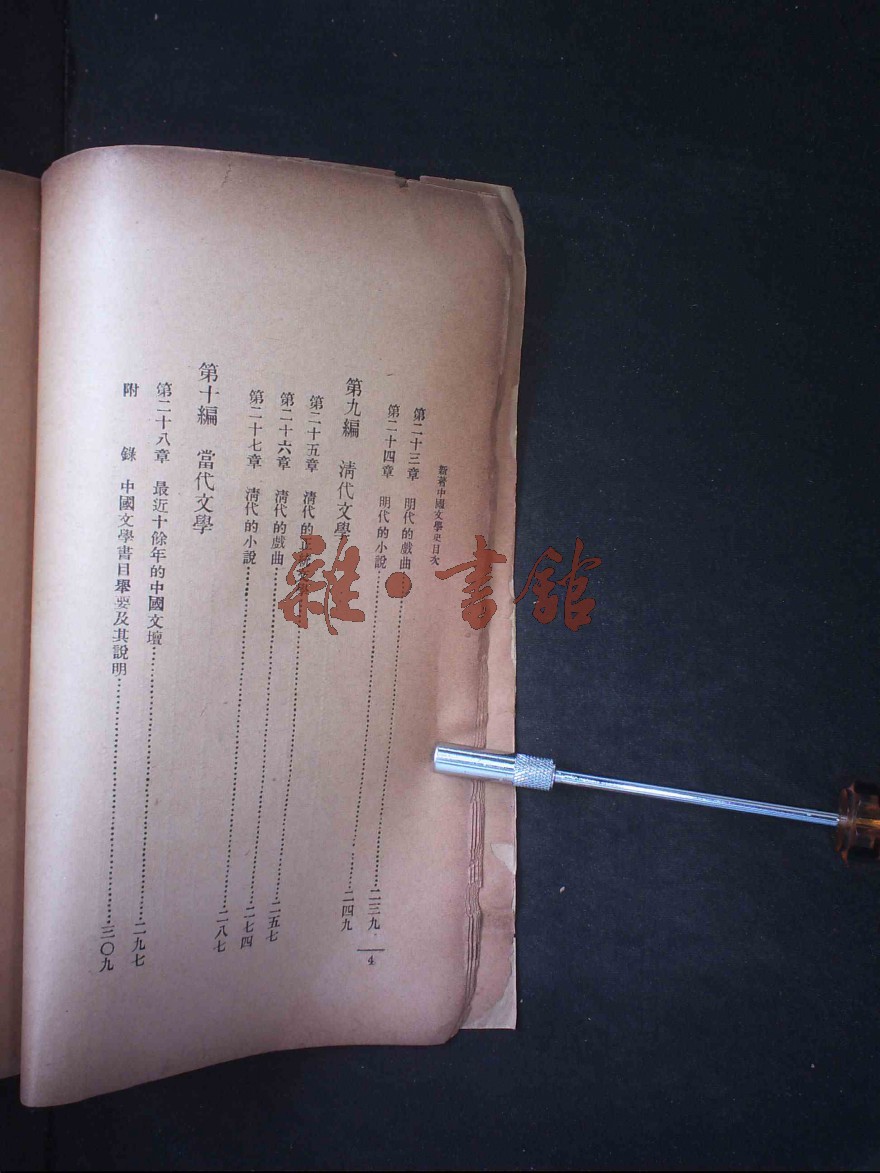 新著中國文學史目次
第二十三章 明代的戲曲……二三九
第二十四章 明代的小說……二四九
第九編 清代文學
第二十五章 清代的正……二五七
第二十六章 清代的戲曲……二七四
第二十七章 清代的小說……二八七
第十編 當代文學
第二十八章 最近十餘年的中國文壇……二九七
附錄 中國文學書目舉要及其說明……三〇九
4
雜·書館